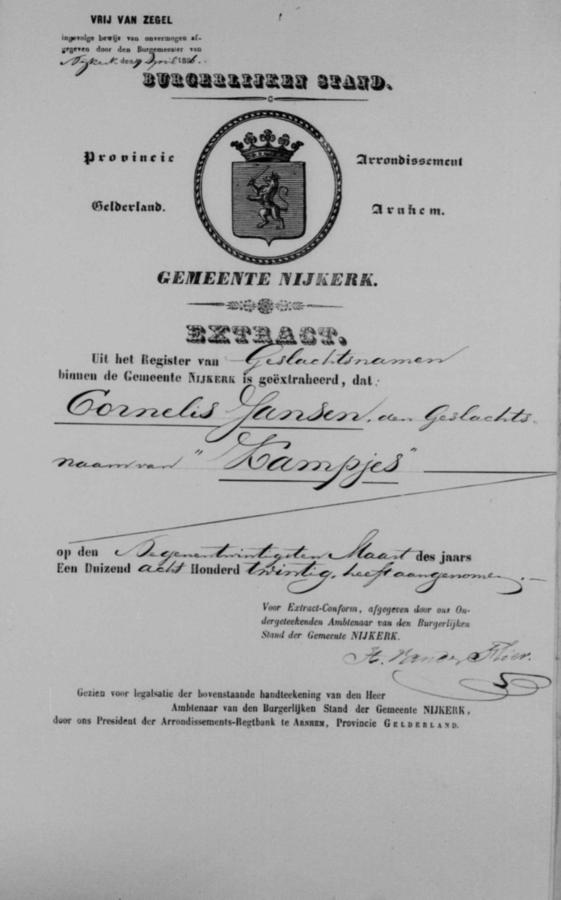 VRIJ VAN ZEGEL
ingevolge bewijs van onvermogen af-
gegeven door den Burgemeester van
Nijkerk den 9 April 1886.
BURGERLIJKEN STAND.
Provincie Arrondissement
Gelderland. Arnhem.
GEMEENTE NIJKERK.
EXTRACT.
Uit het Register van Geslachtsnamen
binnen de Gemeente NIJKERK is geëxtraheerd, dat:
Cornelis Jansen, den Geslachts-
naam van "Kampjes"
op den Negenentwintigsten Maart des jaars
Een Duizend acht Honderd twintig, heeft aangenomen.
Voor Extract-Conform, afgegeven door ons On-
dergeteekenden Ambtenaar van den Burgerlijken
Stand der Gemeente NIJKERK.
van der Flier.
Gezien voor legalsatie der bovenstaande handteekening van den Heer
Ambtenaar van den Burgerlijken Stand der Gemeente NIJKERK,
door ons President der Arrondissements-Regtbank te ARNHEM, Provincie GELDERLAND.